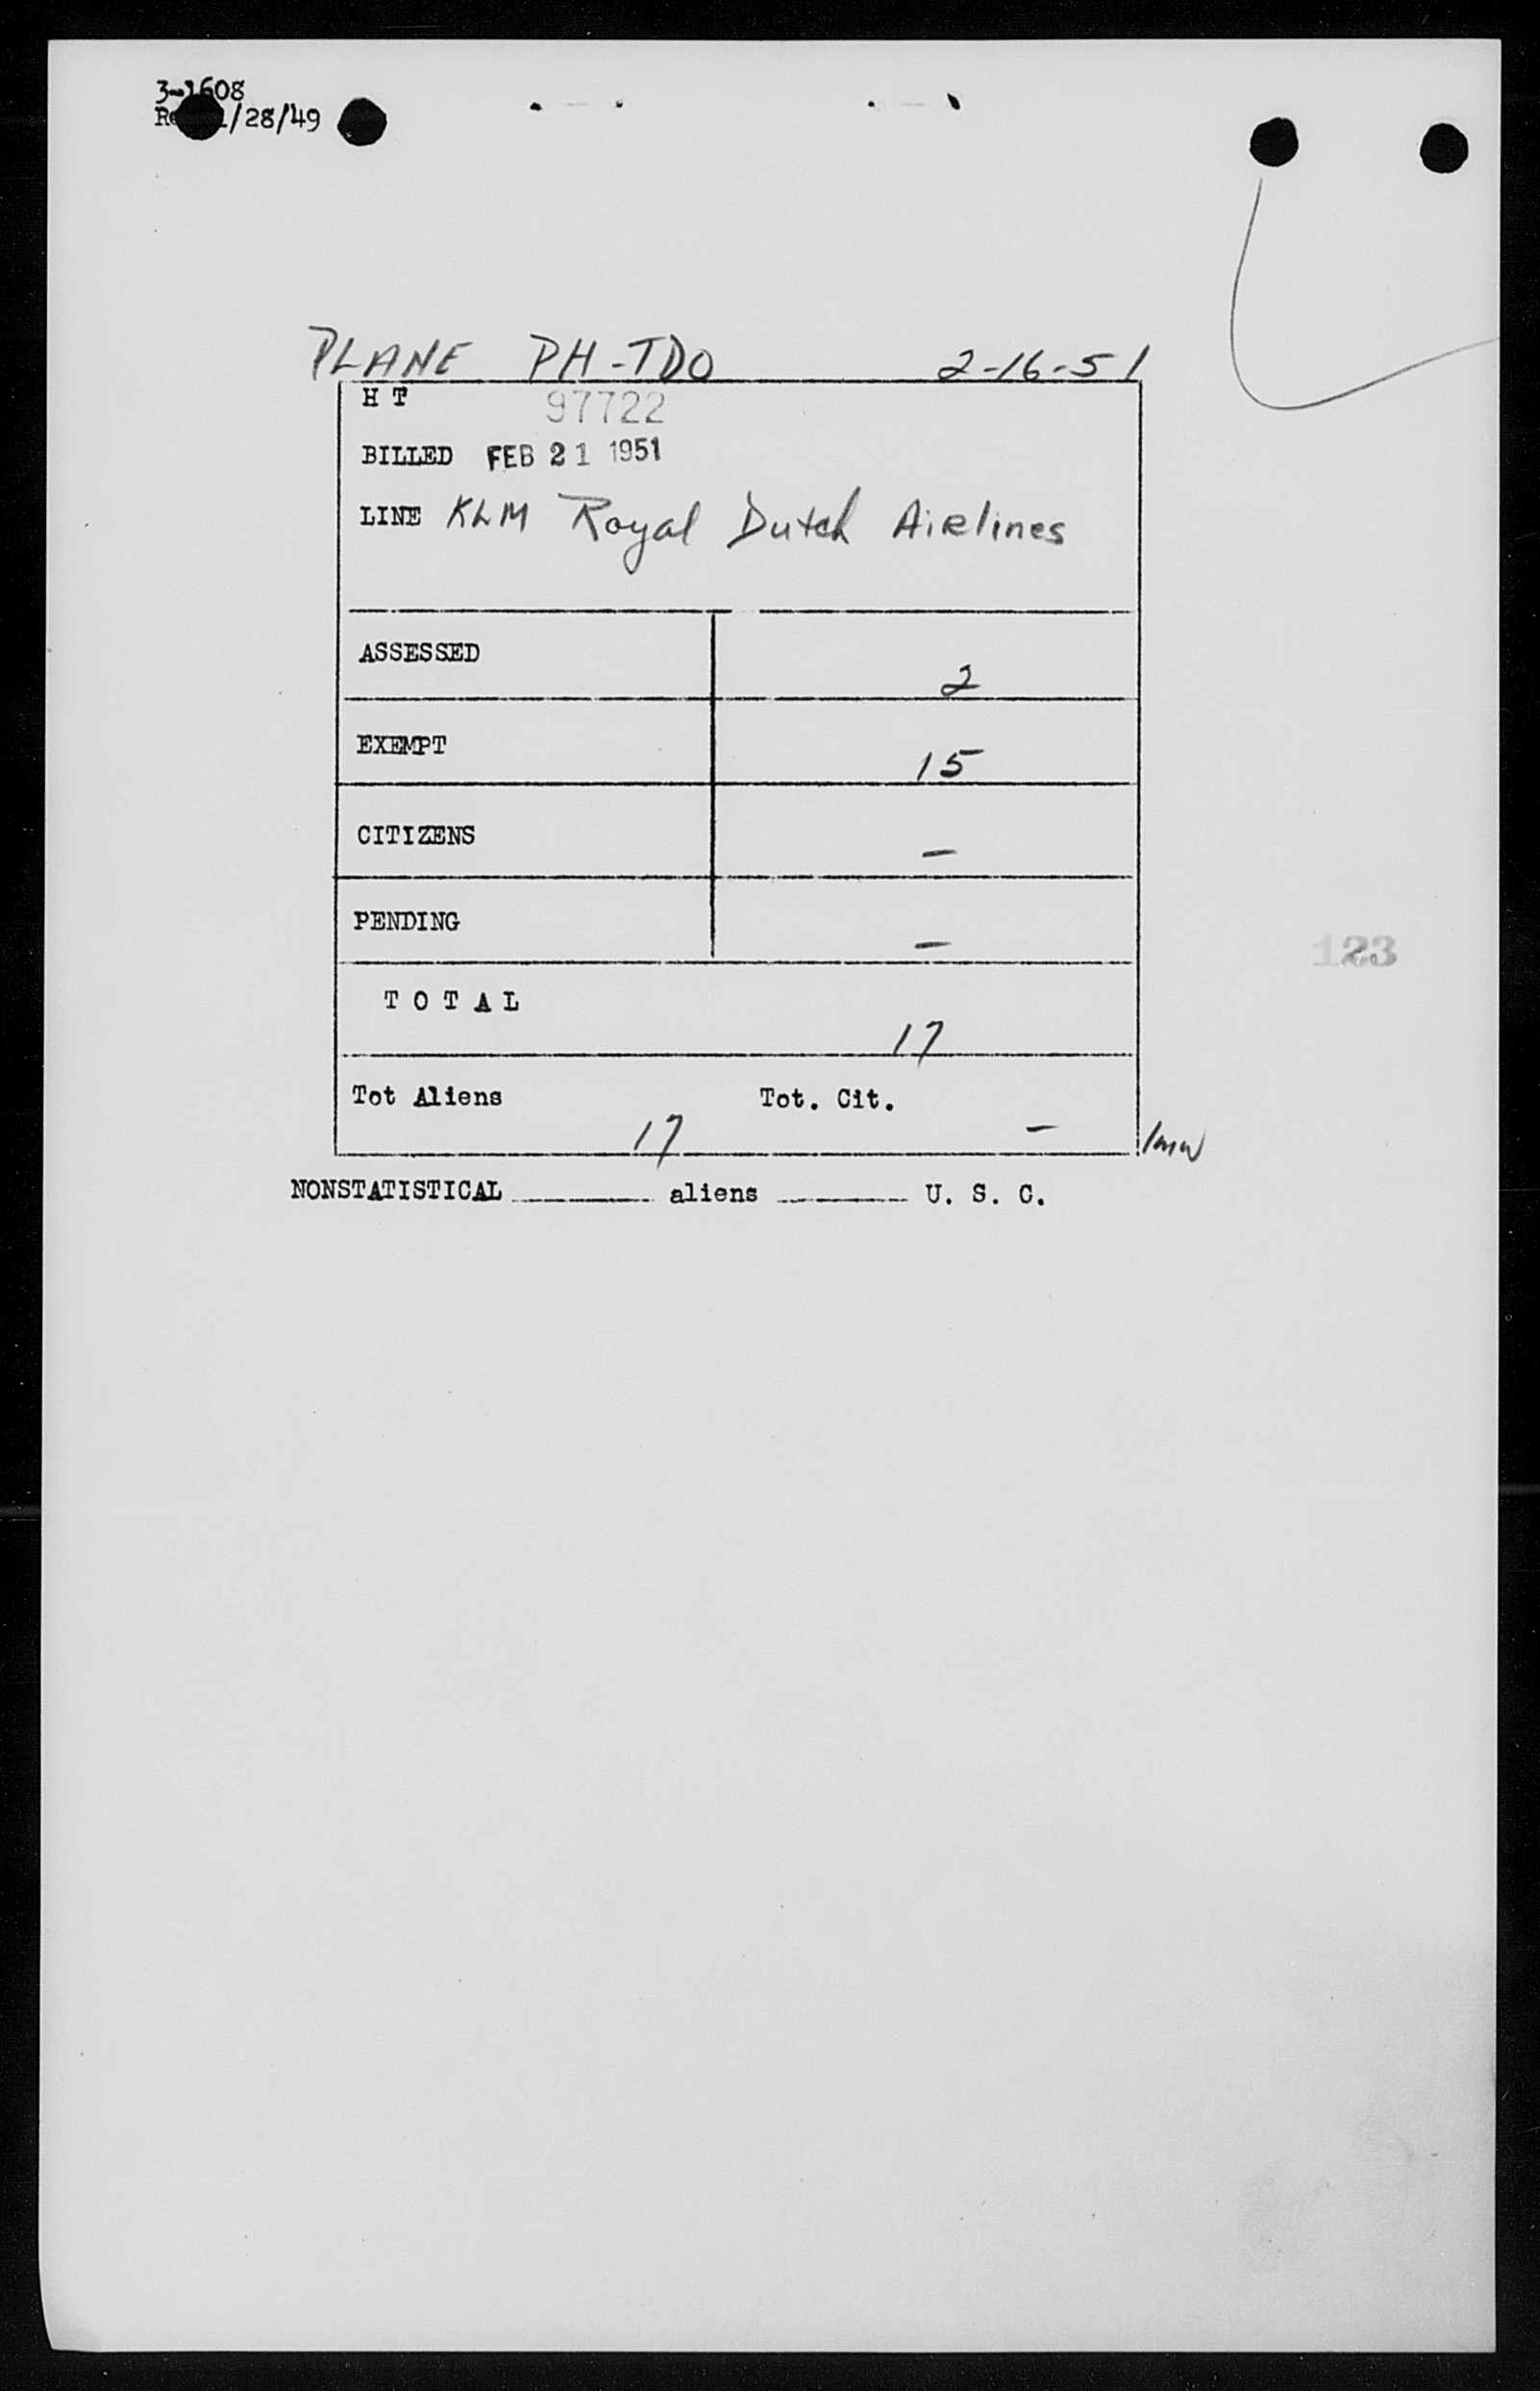 3-1608
1/28/49
PLANE PH-TDO 2-16-51
H T 97722
BILLED FEB 21 1951
LINE KLM Royal Dutch Airlines
ASSESSED 2
EXEMPT 15
CITIZENS –
PENDING –
123
T O T A L 17
Tot Aliens 17 Tot. Cit. –
NONSTATISTICAL ______ aliens ______ U. S. C.